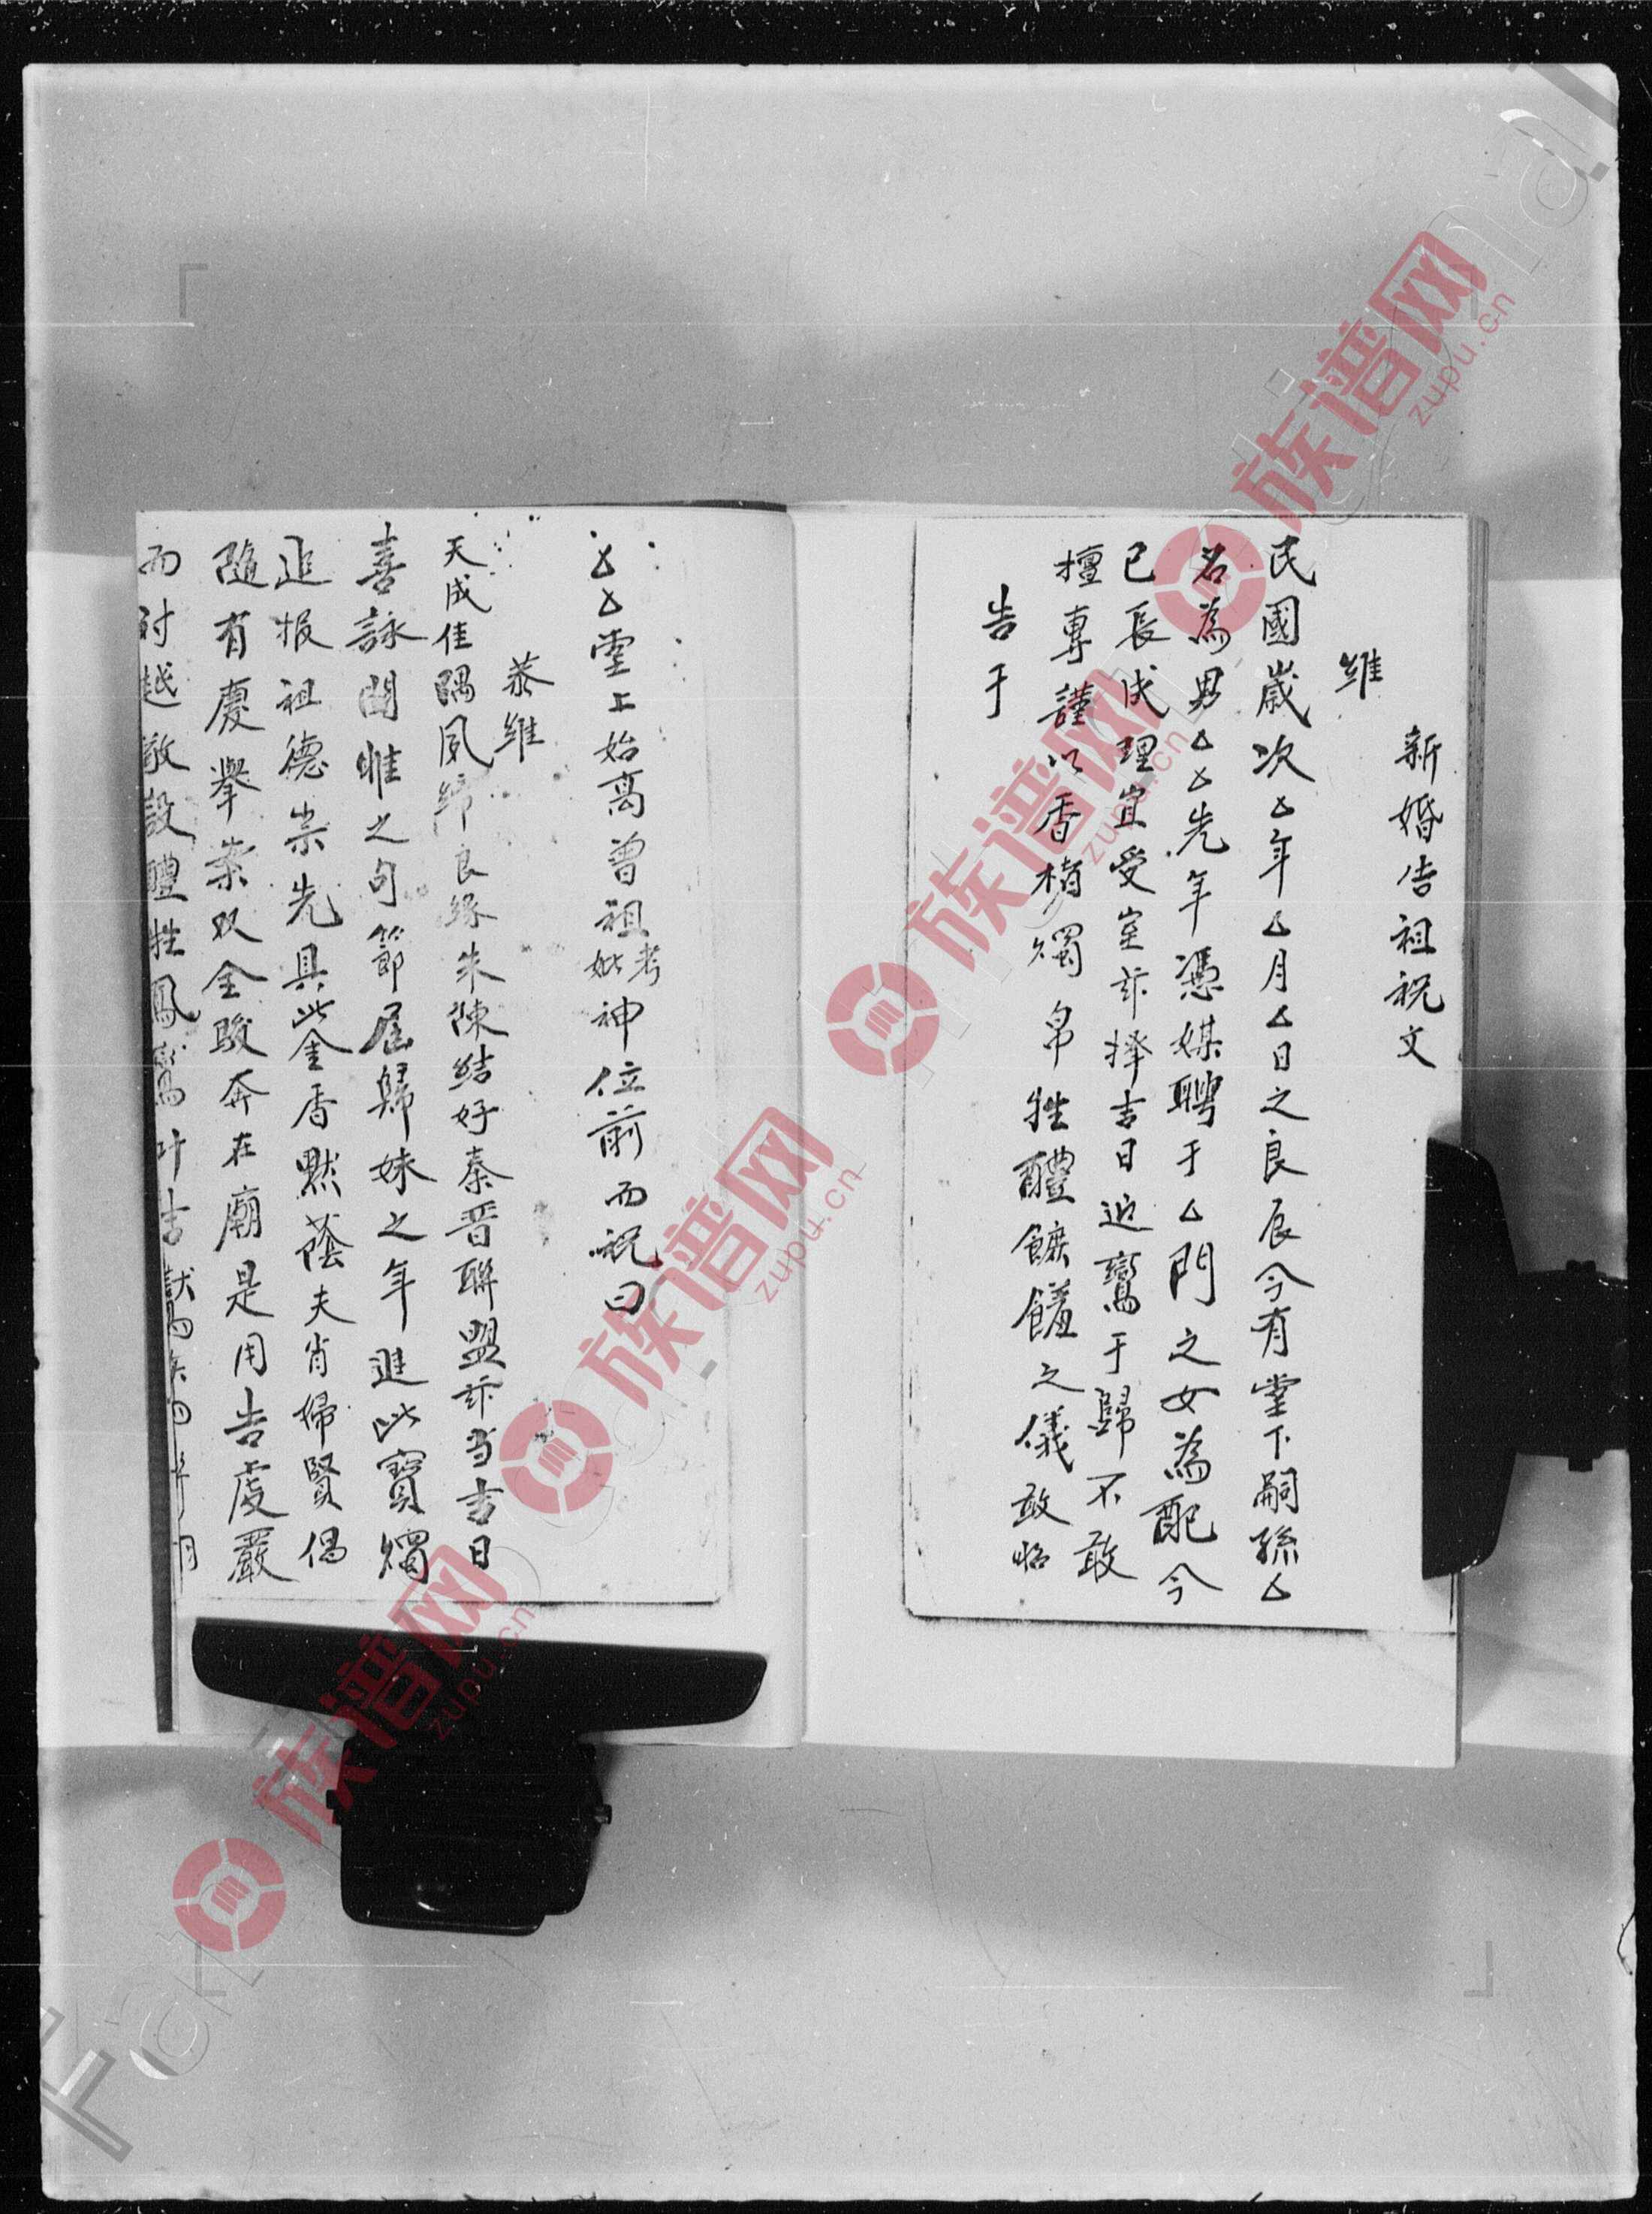 新婚告祖祝文
維
民國歲次厶年厶月厶日之良辰今有堂下嗣孫厶
名為男厶厶先年憑媒聘于厶門之女為配今
已長成理宜受室茲擇吉日迎鸞于歸不敢
擅專謹以香楮燭帛牲醴饌饈之儀敢昭
告于
厶厶堂上始高曾祖考妣神位前而祝曰
恭維
天成佳隅夙締良緣朱陳結好秦晋聯盟茲当吉日
喜詠關雎之句節屆歸妹之年進此寶燭
追报祖德崇先具此金香默蔭夫肖婦賢偶
隨有慶舉案双全駿奔在廟是用告虔嚴
而对越敬設醴牲鳳鸞叶吉
族谱网
zupu.cn
族谱网
zupu.cn
族谱网
zupu.cn
族谱网
zupu.cn